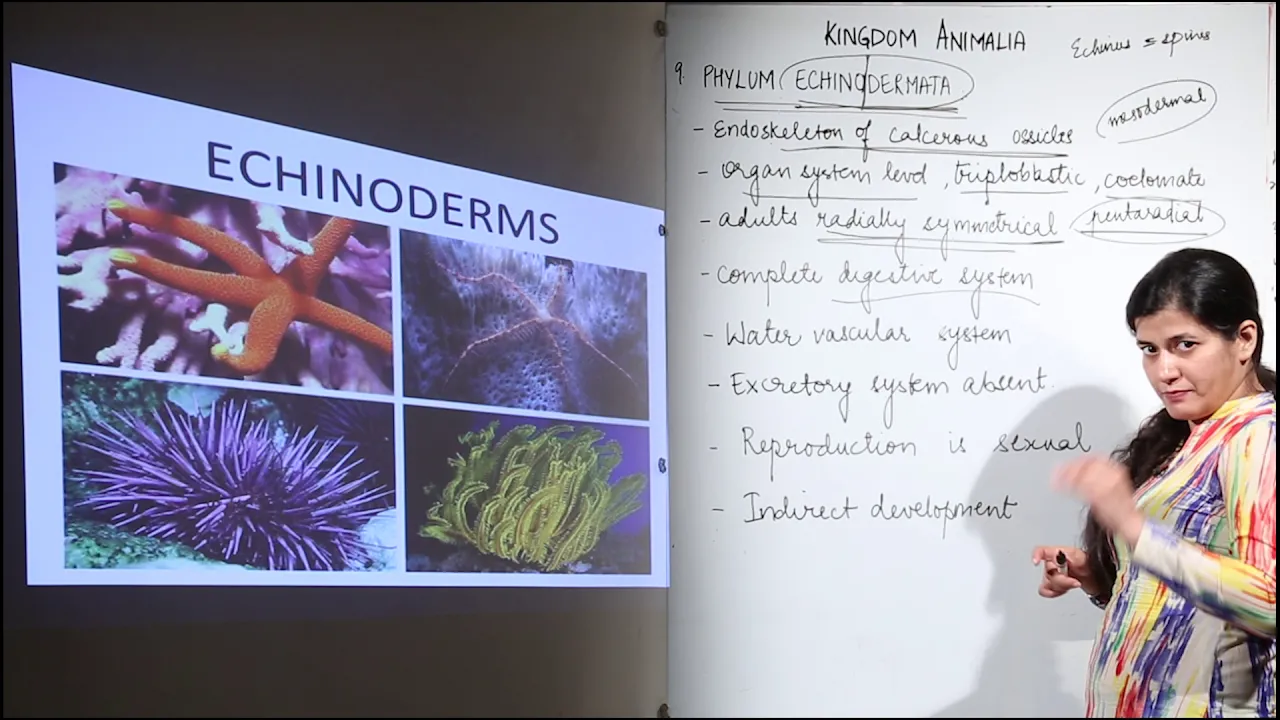 ECHINODERMS
KINGDOM ANIMALIA
Echinus = spines
9. PHYLUM ECHINODERMATA
- Endoskeleton of calcerous ossicles
mesodermal
- organ system level, triploblastic, coelomate
- adults radially symmetrical pentaradial
- Complete digestive system
- Water vascular system
- Excretory system absent.
- Reproduction is sexual
- Indirect development